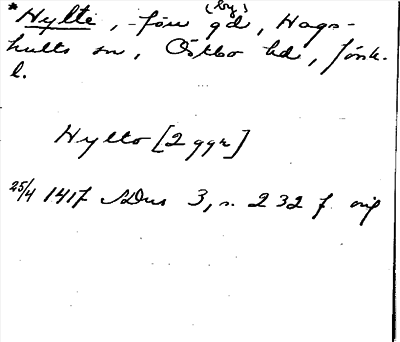 (by)
*Hylte, förr gd, Hags-
hults sn, Östbo hd, Jönk.
l.
Hylto [2 ggr]
25/4 1417 SDns 3, s. 232 f. orig